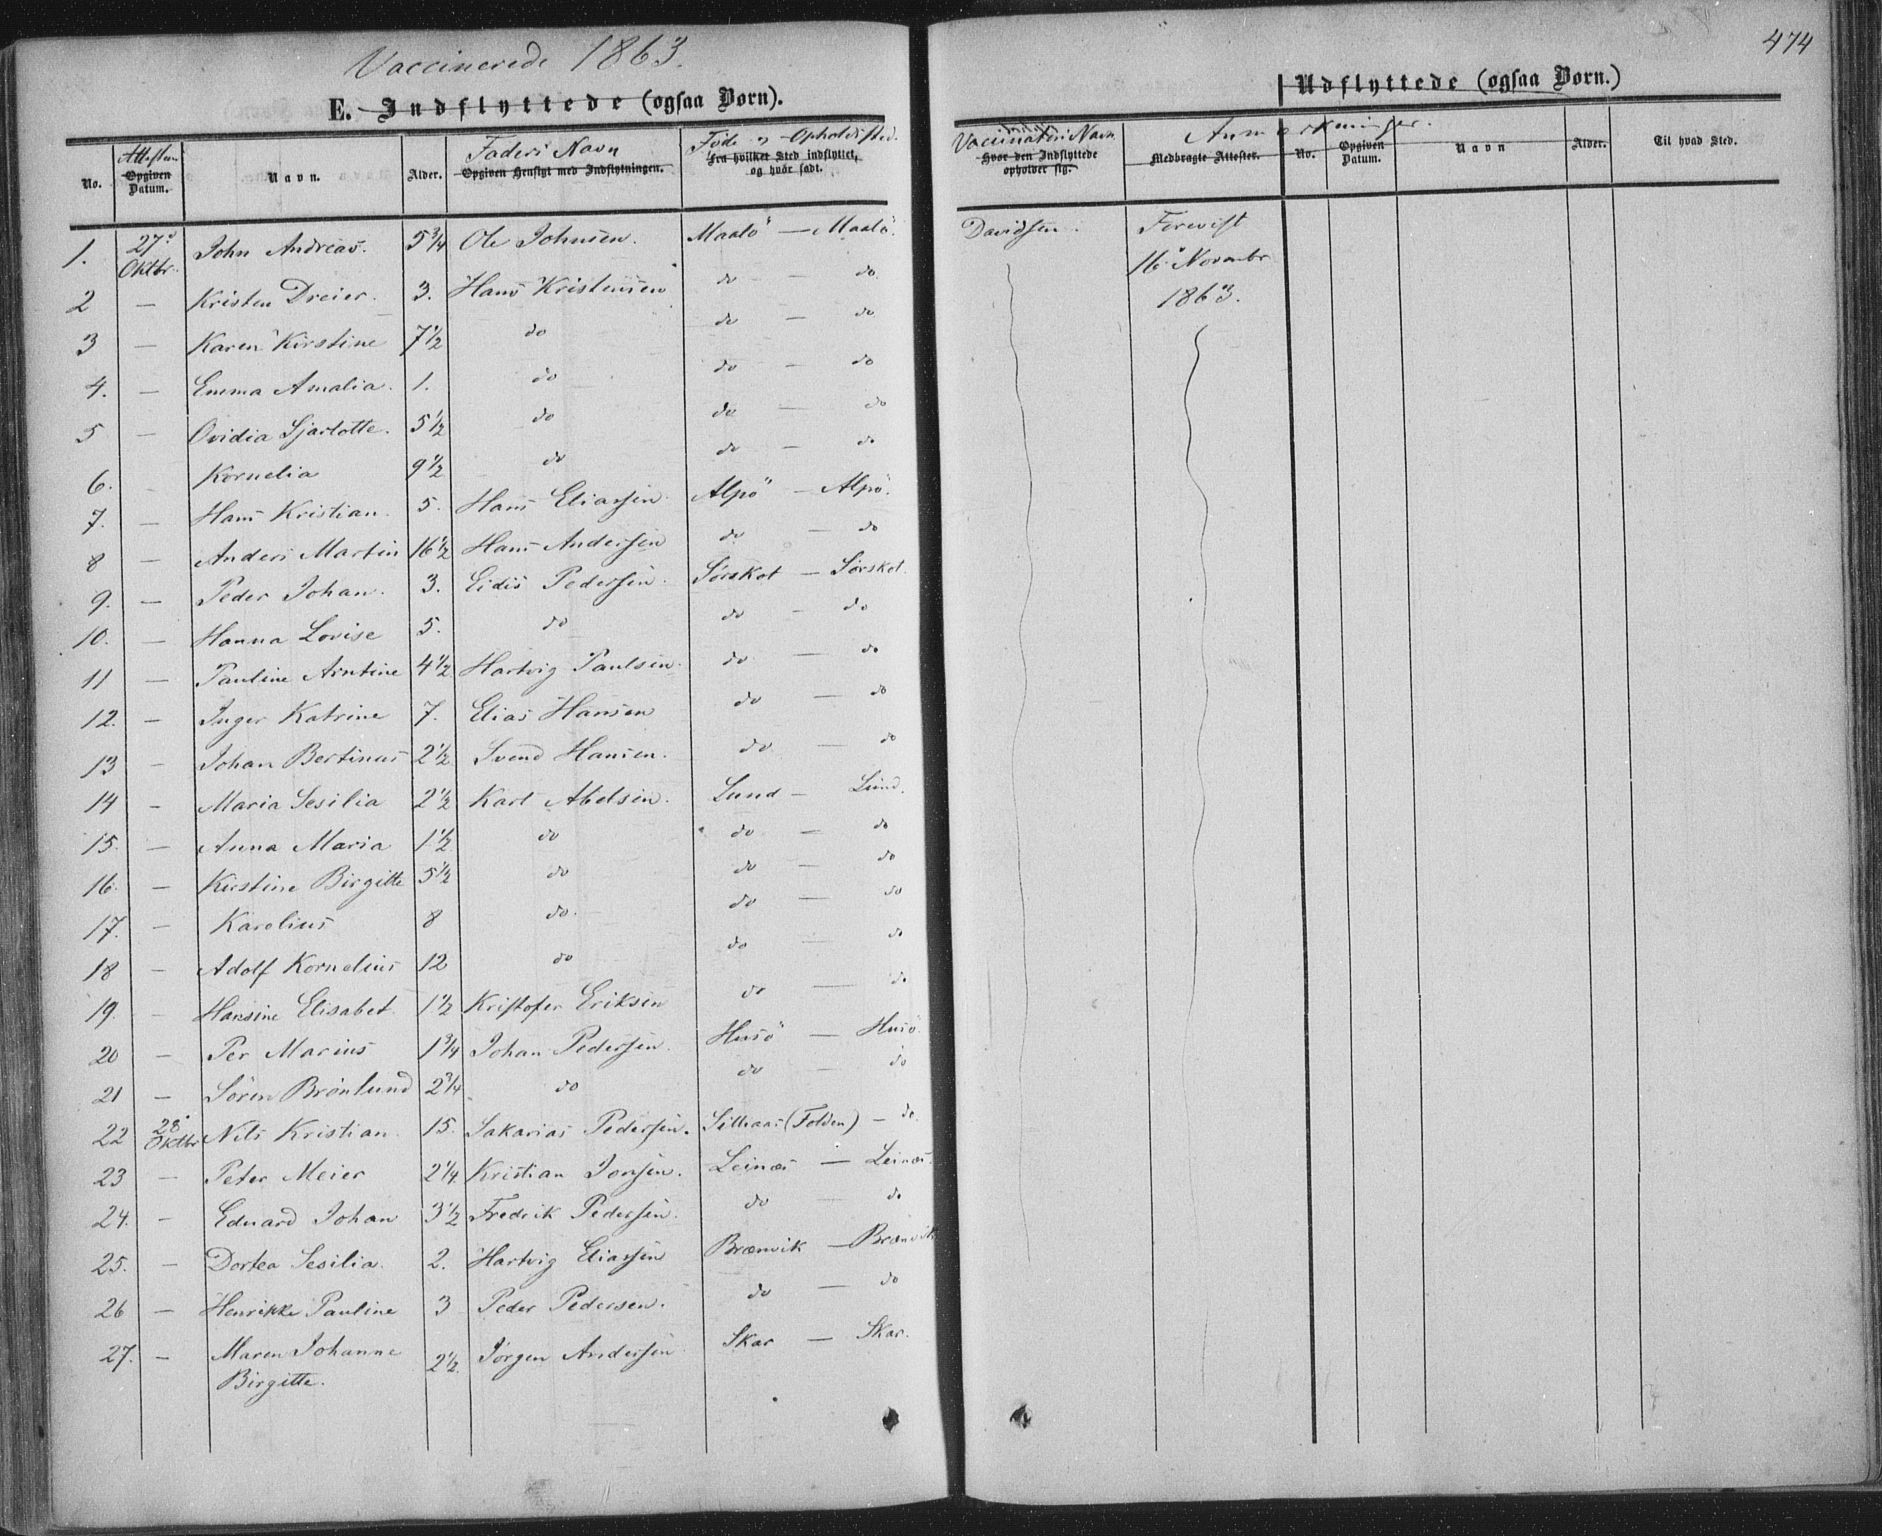 Vaccinerede 1863.
474
E. Indflyttede (ogsaa Børn).
Udflyttede (ogsaa Børn.)
No. Attesten Opgiven Datum. Navn. Alder. Faders Navn Opgiven Hensigt med Indflytningen. Føde og Opholdssted. Fra hvilket Sted indflyttet, og hvor sadt. Vaccinatørs Navn Hvor den Indflyttede opholder sig. Anmærkninger. Medbragte Attester. No. Opgiven Datum. Navn Alder. Til hvad Sted.
1. 27de Oktbr. John Andreas. 5 3/4 Ole Johnsen. Maalö — Maalö. Davidsen. Forevist
16 Novembr
2 — Kristen Dreier. 3. Hans Kristensen do — do 1863.
3 — Karen Kirstine 7 1/2 do do — do
4. — Emma Amalia. 1. do do — do
5 — Ovidia Sjarlotte. 5 1/2 do do — do
6. Kornelia 9 1/2 do do — do
7. — Hans Kristian. 5. Hans Eliassen. Alpö — Alpö.
8 — Anders Martin 16 1/2 Hans Andersen do — do
9. — Peder Johan. 3. Eidis Pedersen. Sörskot — Sörskot.
10. — Hanna Lovise 5. do do — do
11 — Pauline Arntine 4 1/2 Hartvig Paulsen. do — do
12. — Inger Katrine 7. Elias Hansen do — do
13 — Johan Bertinus 2 1/2 Svend Hansen. do — do
14 — Maria Sesilia 2 1/2 Karl Abelsen. Lund — Lund.
15. — Anna Maria 1 1/2 do do — do
16. — Kirstine Birgitte 5 1/2 do do — do
17. — Karolius 8 do. do — do
18 — Adolf Kornelius 12 do do — do
19. — Hansine Elisabet. 1 1/2 Kristofer Eriksen do — do
20 — Per Marius 1 3/4 Johan Pedersen. Husö — Husö
21 — Sören Brönlund 2 3/4. do do — do
22 28. Oktbr Nils Kristian. 15. Sakarias Pedersen. (Folden) — do
23 — Peter Meier 2 1/4 Kristian Jonsen. Leinæs — Leinæs.
24. — Eduard Johan 3 1/2 Fredrik Pedersen. do — do
25. — Dortea Sesilia. 2. Hartvig Eliassen Brænvik — Brænvik
26 — Henrikke Pauline 3 Peder Pedersen. do — do
27. — Maren Johanne 2 1/2. Jörgen Andersen. Skar — Skar.
Birgitte.